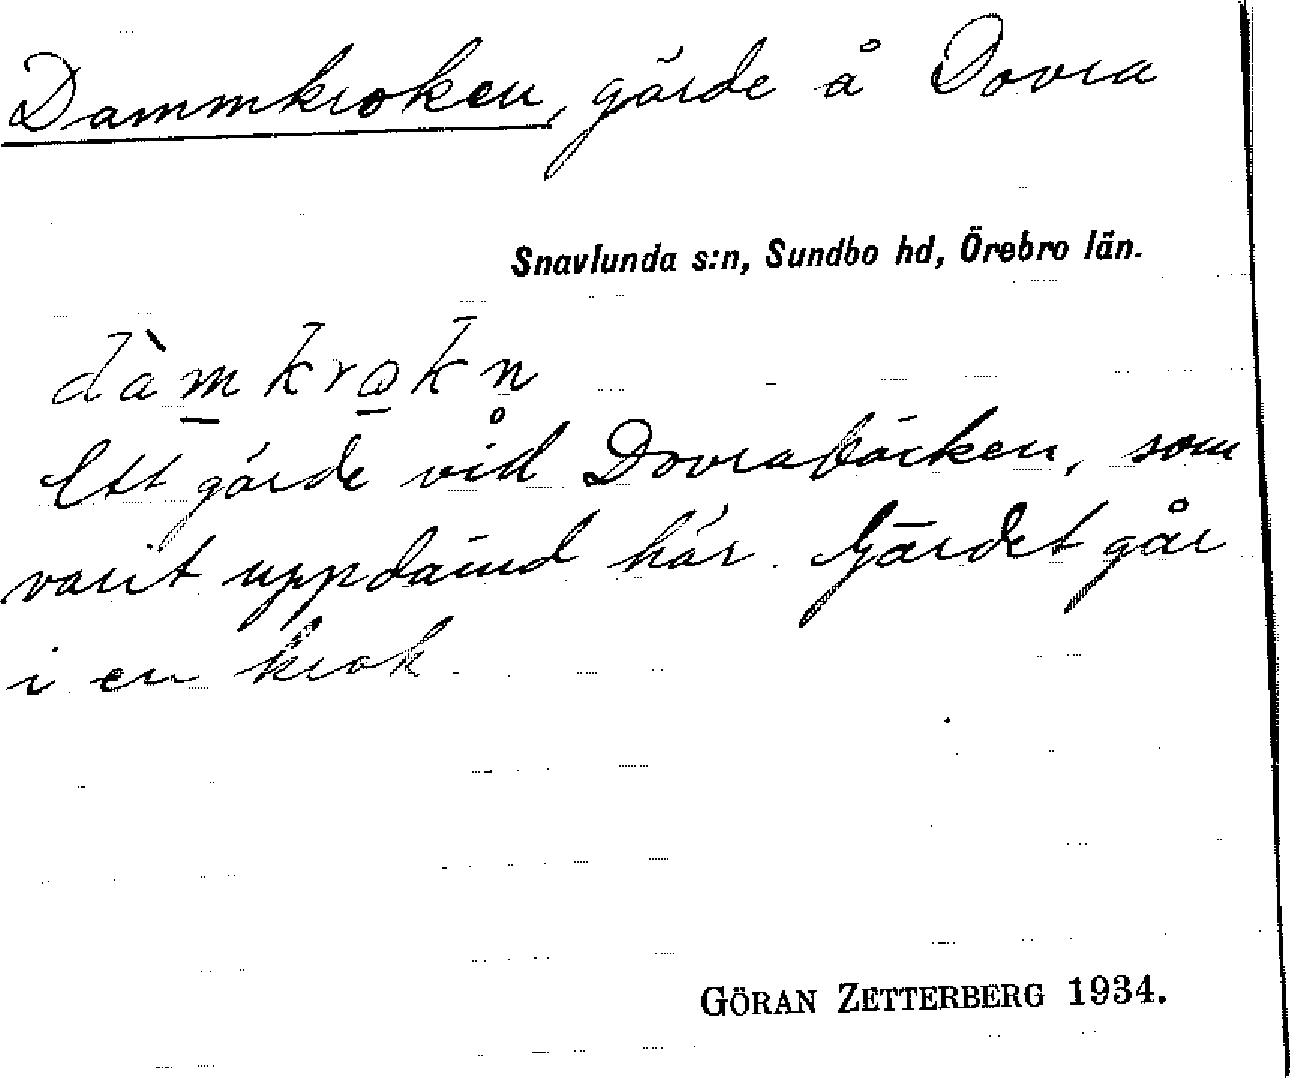 Dammkroken, gärde å Dovra
Snavlunda s:n, Sundbo hd, Örebro län.
dàm̲kro̲kn̥
Ett gärde vid Dovrabäcken, som
varit uppdämd här. Gärdet går
i en krok.
GÖRAN ZETTERBERG 1934.